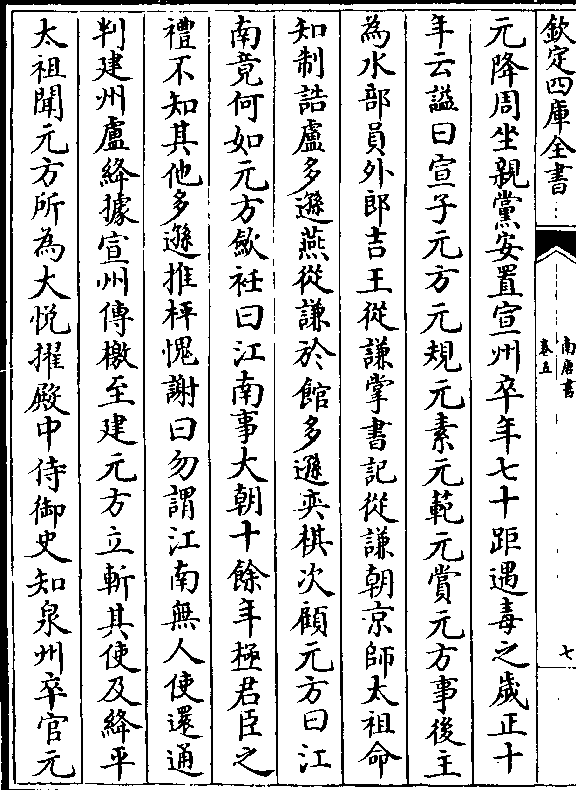 欽定四庫全書
南唐書
卷五
七
元降周坐親黨安置宣州卒年七十距遇毒之歲正十
年云諡曰宣子元方元規元素元範元賞元方事後主
為水部員外郎吉王從謙掌書記從謙朝京師太祖命
知制誥盧多遜燕從謙於館多遜奕棋次顧元方曰江
南竟何如元方斂衽曰江南事大朝十餘年極君臣之
禮不知其他多遜推枰愧謝曰勿謂江南無人使還通
判建州盧絳據宣州傳檄至建元方立斬其使及絳平
太祖聞元方所為大悅擢殿中侍御史知泉州卒官元